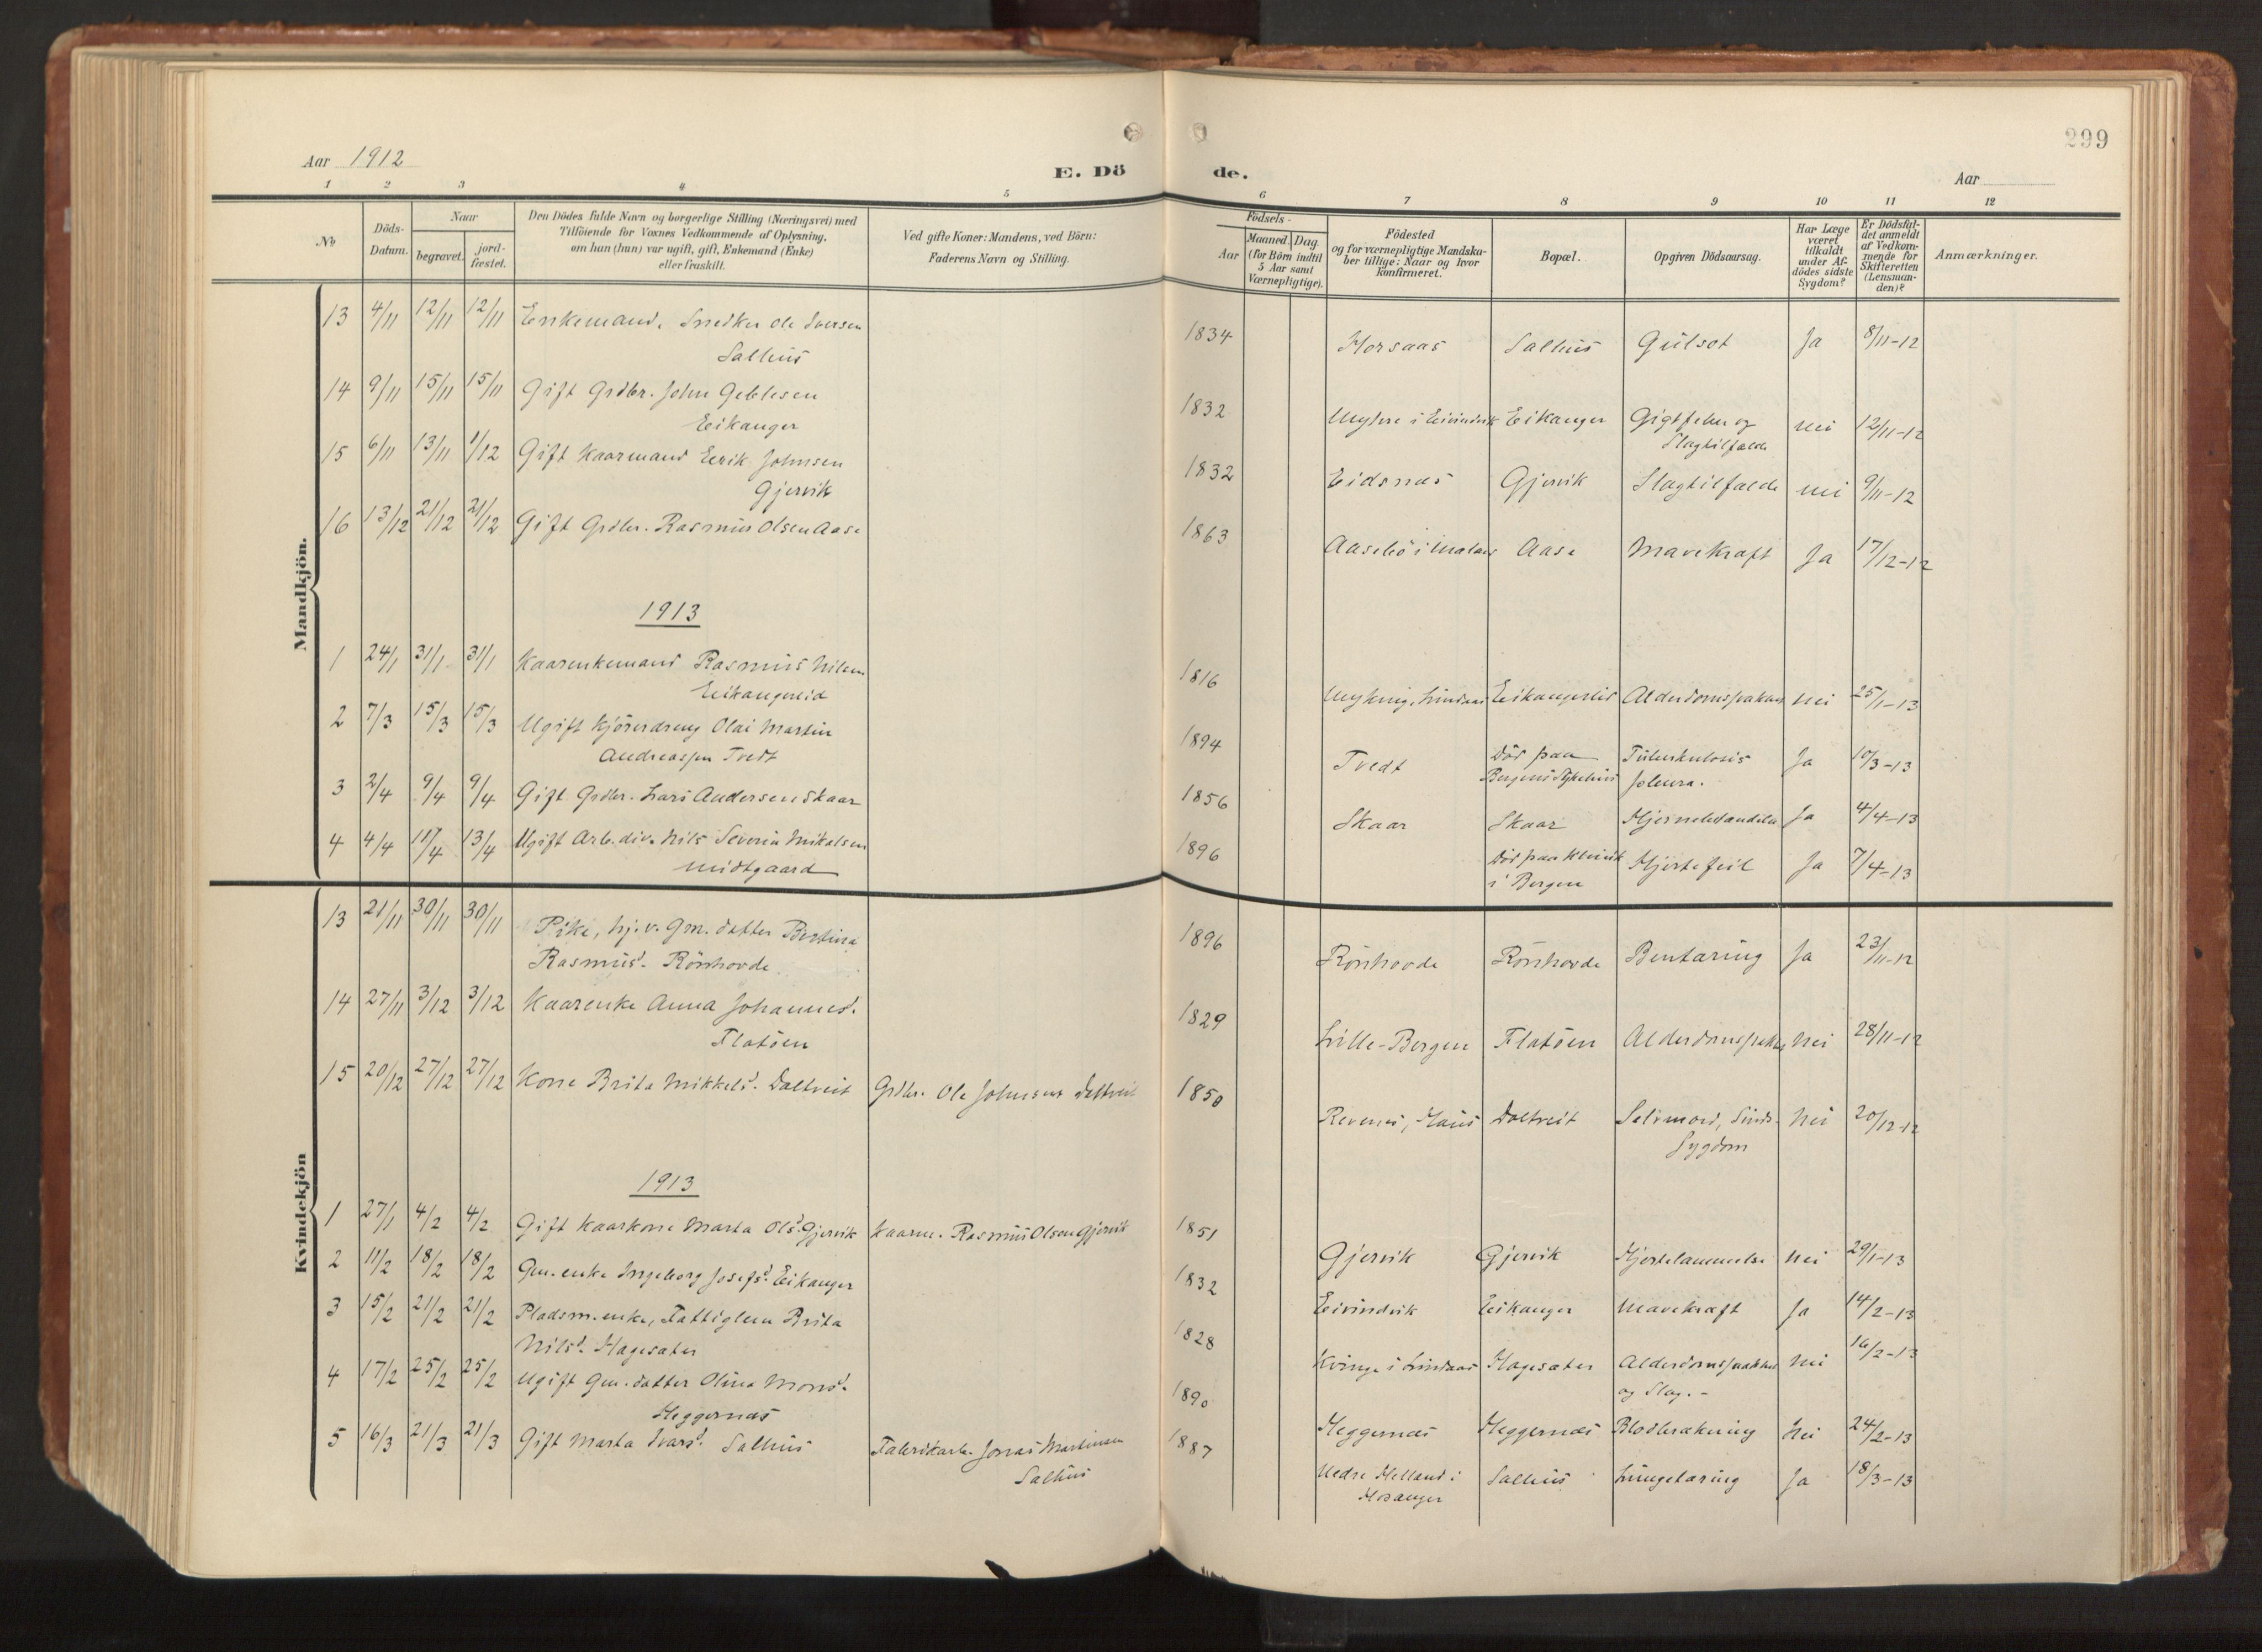 299
Aar 1912
E. Dö
de.
Aar
1 2 3 4 5 6 7 8 9 10 11 12
No
Döds-
Datum.
Naar
begravet.
jord-
fæstet.
Den Dödes fulde Navn og borgerlige Stilling (Næringsvei) med
Tilföiende for Voxnes Vedkommende af Oplysning,
om han (hun) var ugift, gift, Enkemand (Enke)
eller fraskilt.
Ved gifte Koner: Mandens, ved Börn:
Faderens Navn og Stilling.
Födsels-
Aar
Maaned. Dag.
(for Börn indtil
5 Aar samt
Værnepligtige).
Födested
og for værnepligtige Mandska-
ber tillige: Naar og hvor
konfirmeret.
Bopæl.
Opgiven Dödsaarsag.
Har Læge
været
tilkaldt
under Af-
dödes sidste
Sygdom?
Er Dödsfal-
det anmeldt
af Vedkom-
mende for
Skifteretten
(Lensman-
den)?
Anmærkninger.
Mandkjön.
13 4/11 12/11 12/11 Enkemand, Snedker Ole Iversen 1834 Horsaas Salhus Gulsot Ja 8/11-12
Salhus
14 9/11 15/11 15/11 Gift Grdbr. John Geblesen 1832 i Eivindvik Eikanger Gigtfeber og nei 12/11-12
Eikanger Slagtilfælde
15 6/11 13/11 1/12 Gift Kaarmand Eerik Johnsen 1832 Eidsnæs Gjervik Slagtilfælde nei 9/11-12
Gjervik
16 13/12 21/12 21/12 Gift Grdbr. Rasmus Olsen Aase 1863 Aasebö i Aase Mavekræft Ja 17/12-12
1913
1 24/1 31/1 31/1 Kaarenkemand Rasmus Nilsen 1816 Myking, Lindaas Eikangereid nei 25/1-13
Eikangereid
2 7/3 15/3 15/3 Ugift Kjöredreng Olai Martin 1894 Tvedt Död paa Tuberkulosis Ja 10/3-13
Andreassen Tvedt Bergens Sykehus pleura.
3 2/4 9/4 9/4 Gift Grdbr. Lars Andersen Skaar 1856 Skaar Skaar Ja 4/4-13
4 4/4 11/4 13/4 Ugift Arb. div. Nils Severin Mikalsen 1896 Död paa Klinik Hjertefeil Ja 7/4-13
Midtgaard i Bergen
Kvindekjön
13 21/11 30/11 30/11 Pike, hj. v. Gm. datter Bertina 1896 Rönhovde Rönhovde Bentæring Ja 23/11-12
Rasmusd. Rönhovde
14 27/11 3/12 3/12 Kaarenke Anna Johannesd. 1829 Lille-Bergen Flatöen nei 28/11-12
Flatöen
15 20/12 27/12 27/12 Kone Brita Mikkelsd. Daltveit Grdbr. Ole Johnsens Daltveit 1850 Revenes, Haus Daltveit Selvmord, Sinds- nei 20/12-12
Sygdom
1913
1 27/1 4/2 4/2 Gift Kaarkone Marta Olsd. Gjervik Kaarm. Rasmus Olsen Gjervik 1851 Gjervik Gjervik Hjertelammelse nei 29/1-13
2 11/2 18/2 18/2 Gm. enke Ingeborg Josefsd. Eikanger 1832 Eivindvik Eikanger Mavekræft Ja 14/2-13
3 15/2 21/2 21/2 Pladsm. enke, Fattiglem Brita 1828 Kvinge i Lindaas Hagesæter nei 16/2-13
Nilsd. Hagesæter og Slag.-
4 17/2 25/2 25/2 Ugift Gm. datter Olina Monsd. 1890 Heggernæs Heggernæs Blodbrækning nei 24/2-13
Heggernæs
5 16/3 21/3 21/3 Gift Marta Ivarsd. Salhus Fabrikarb. Jonas Martinsen 1887 Nedre Helland i Salhus Lungetæring Ja 18/3-13
Salhus Hosanger